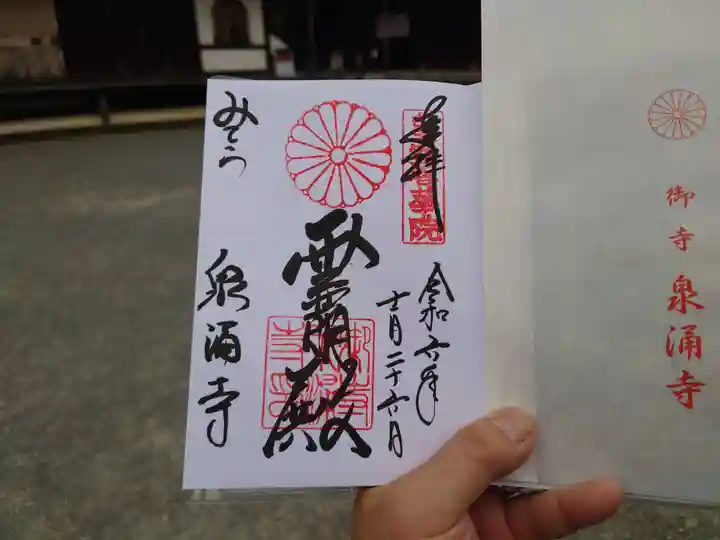 御寺
泉涌寺
奉拝
令和六年
十一月二十六日
霊明殿
みてら
泉涌寺